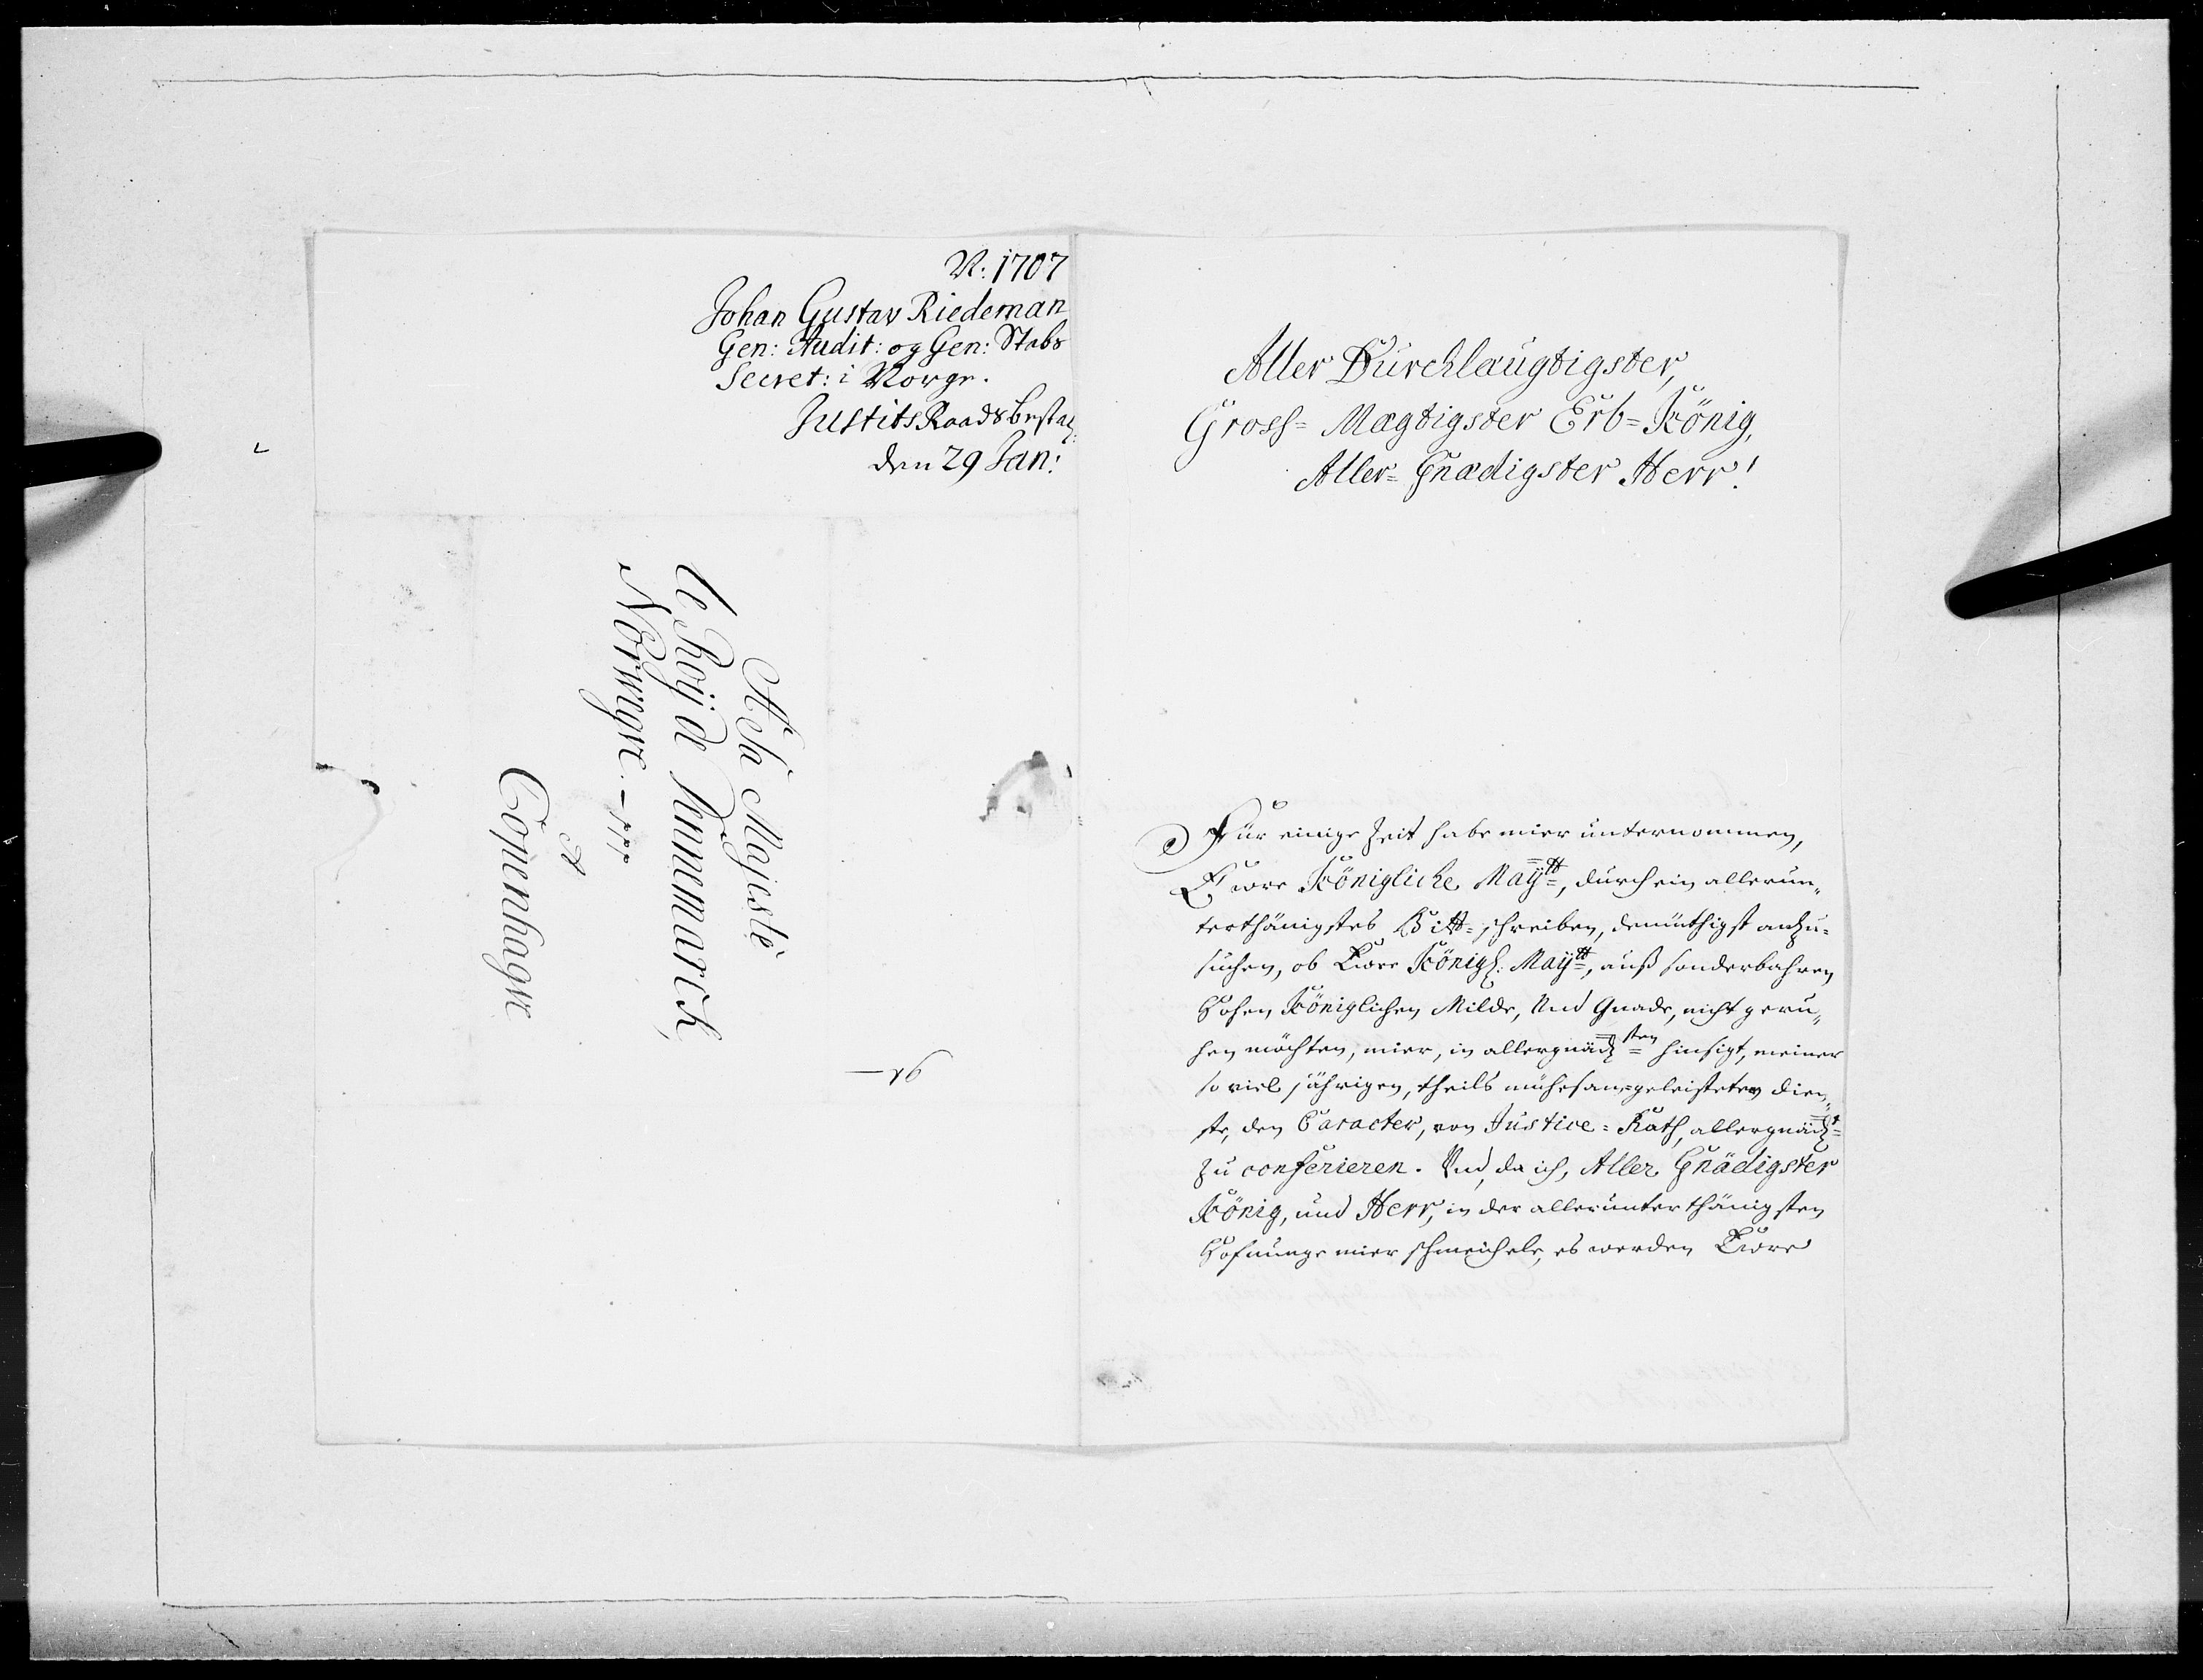 N: 1707
Johan Gustav Riedeman
Gen: Audit: og Gen: Stabs
Secret: i Norge.
Justits Raads bestal:
den 29 Jan:
A Sa Majesté
le Roÿ de Dennemarck,
Norwegve. - ppp
A
Copenhagve
Aller Durchlaugtigster,
Gross= Mægtigster Erb=König,
Aller= Gnædigster Herr!
Für einige Zeit habe mier unternommen,
Ewre Königliche Maÿtt, durch ein allerun„
terthänigstes Bitt=schreiben, demüthigst anzu=
suchen, ob Ewre Königl: Maÿtt, auß sonderbahren
Hohen Königlichen Milde, Und Gnade, nicht geru„
hen möchten, mier, in allergnädsten hinsigt, meiner
so viel jährigen, theils mühesam=geleisteten dien„
ste, den Caracter, von Justice=Rath, allergnädst
zu conferieren. Und, da ich, Aller Gnädigster
König, und Herr, in der allerunterthänigsten
Hofnunge mier schmeichele, es werden Ewre